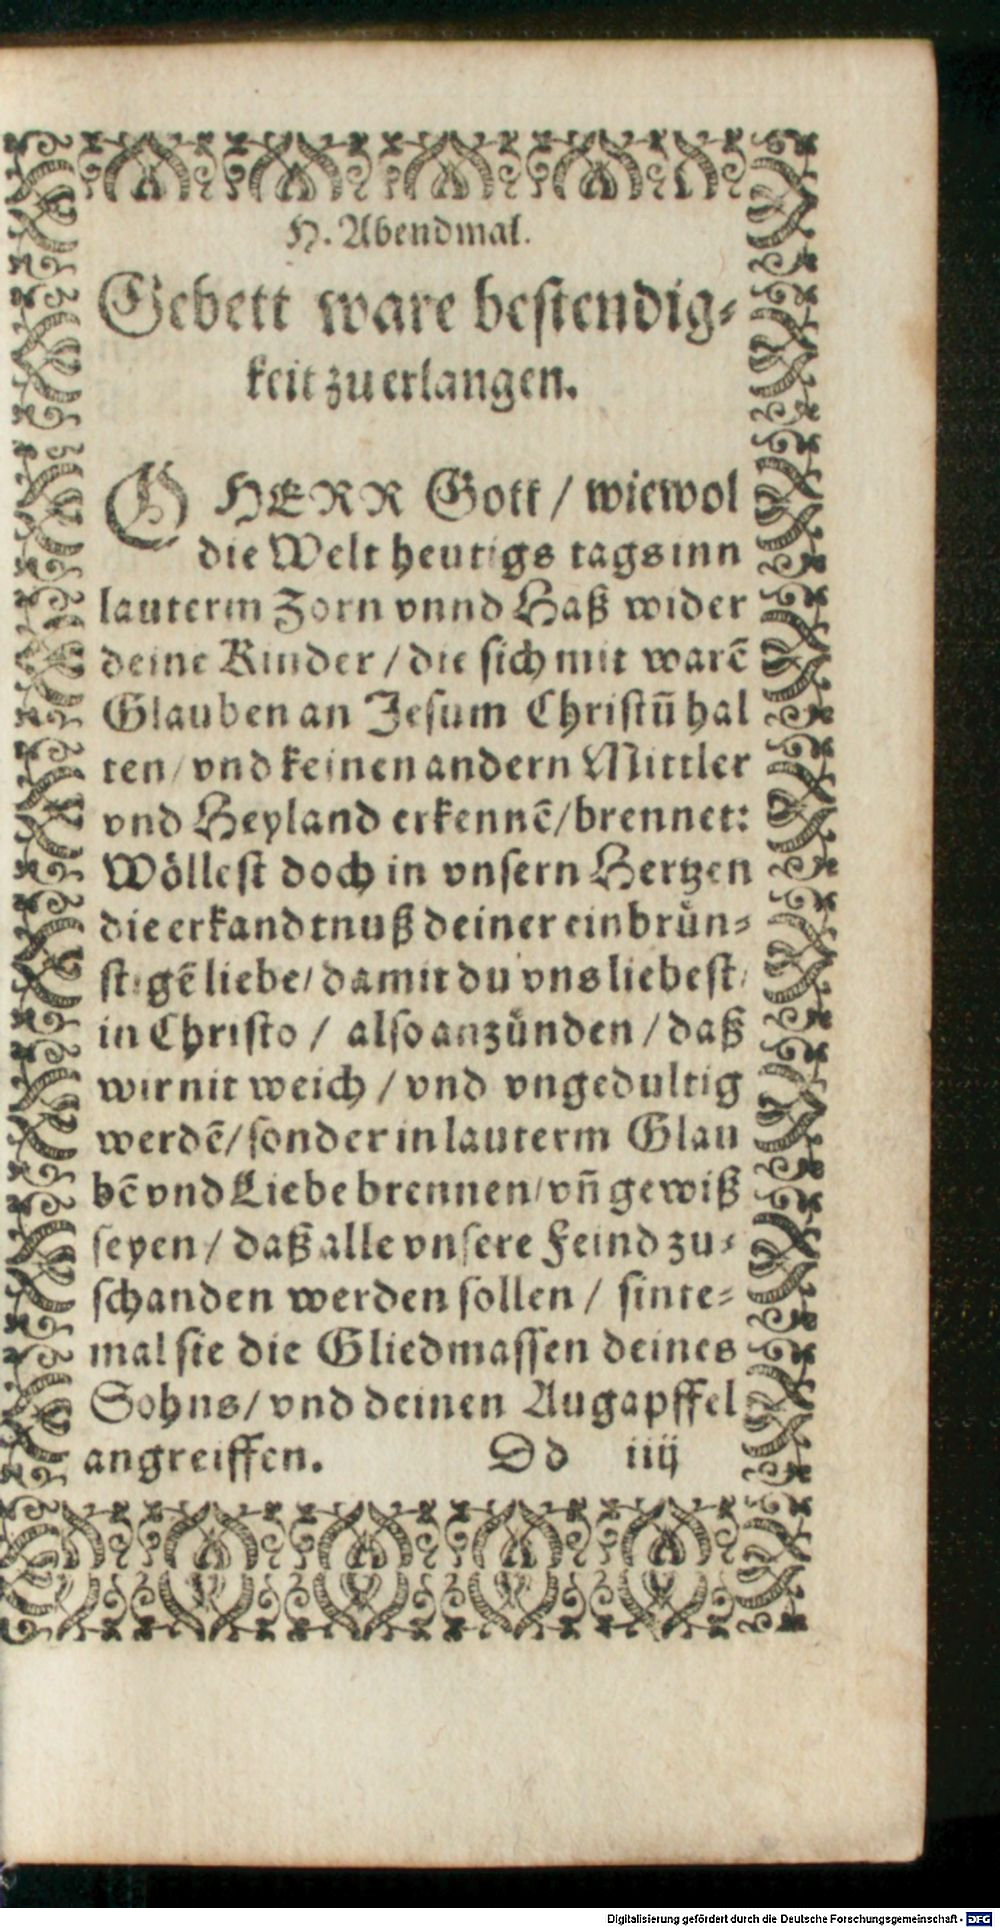 H. Abendmal.
Gebett ware bestendig⸗
keit zu erlangen.
O HERR Gott / wiewol
die Welt heutigs tags inn
lauterm Zorn vnnd Haß wider
deine Kinder / die sich mit warē
Glauben an Jesum Christū hal
ten / vnd keinen andern Mittler
vnd Heyland erkennē / brennet:
Wöllest doch in vnsern Hertzen
die erkandtnuß deiner einbrün⸗
stigē liebe / damit du vns liebest /
in Christo / also anzünden / daß
wir nit weich / vnd vngedultig
werdē / sonder in lauterm Glau
bē vnd Liebe brennen / vñ gewiß
seyen / daß alle vnsere Feind zu⸗
schanden werden sollen / sinte⸗
mal sie die Gliedmassen deines
Sohns / vnd deinen Augapffel
angreiffen. Dd iiij
Digitalisierung gefördert durch die Deutsche Forschungsgemeinschaft - DFG